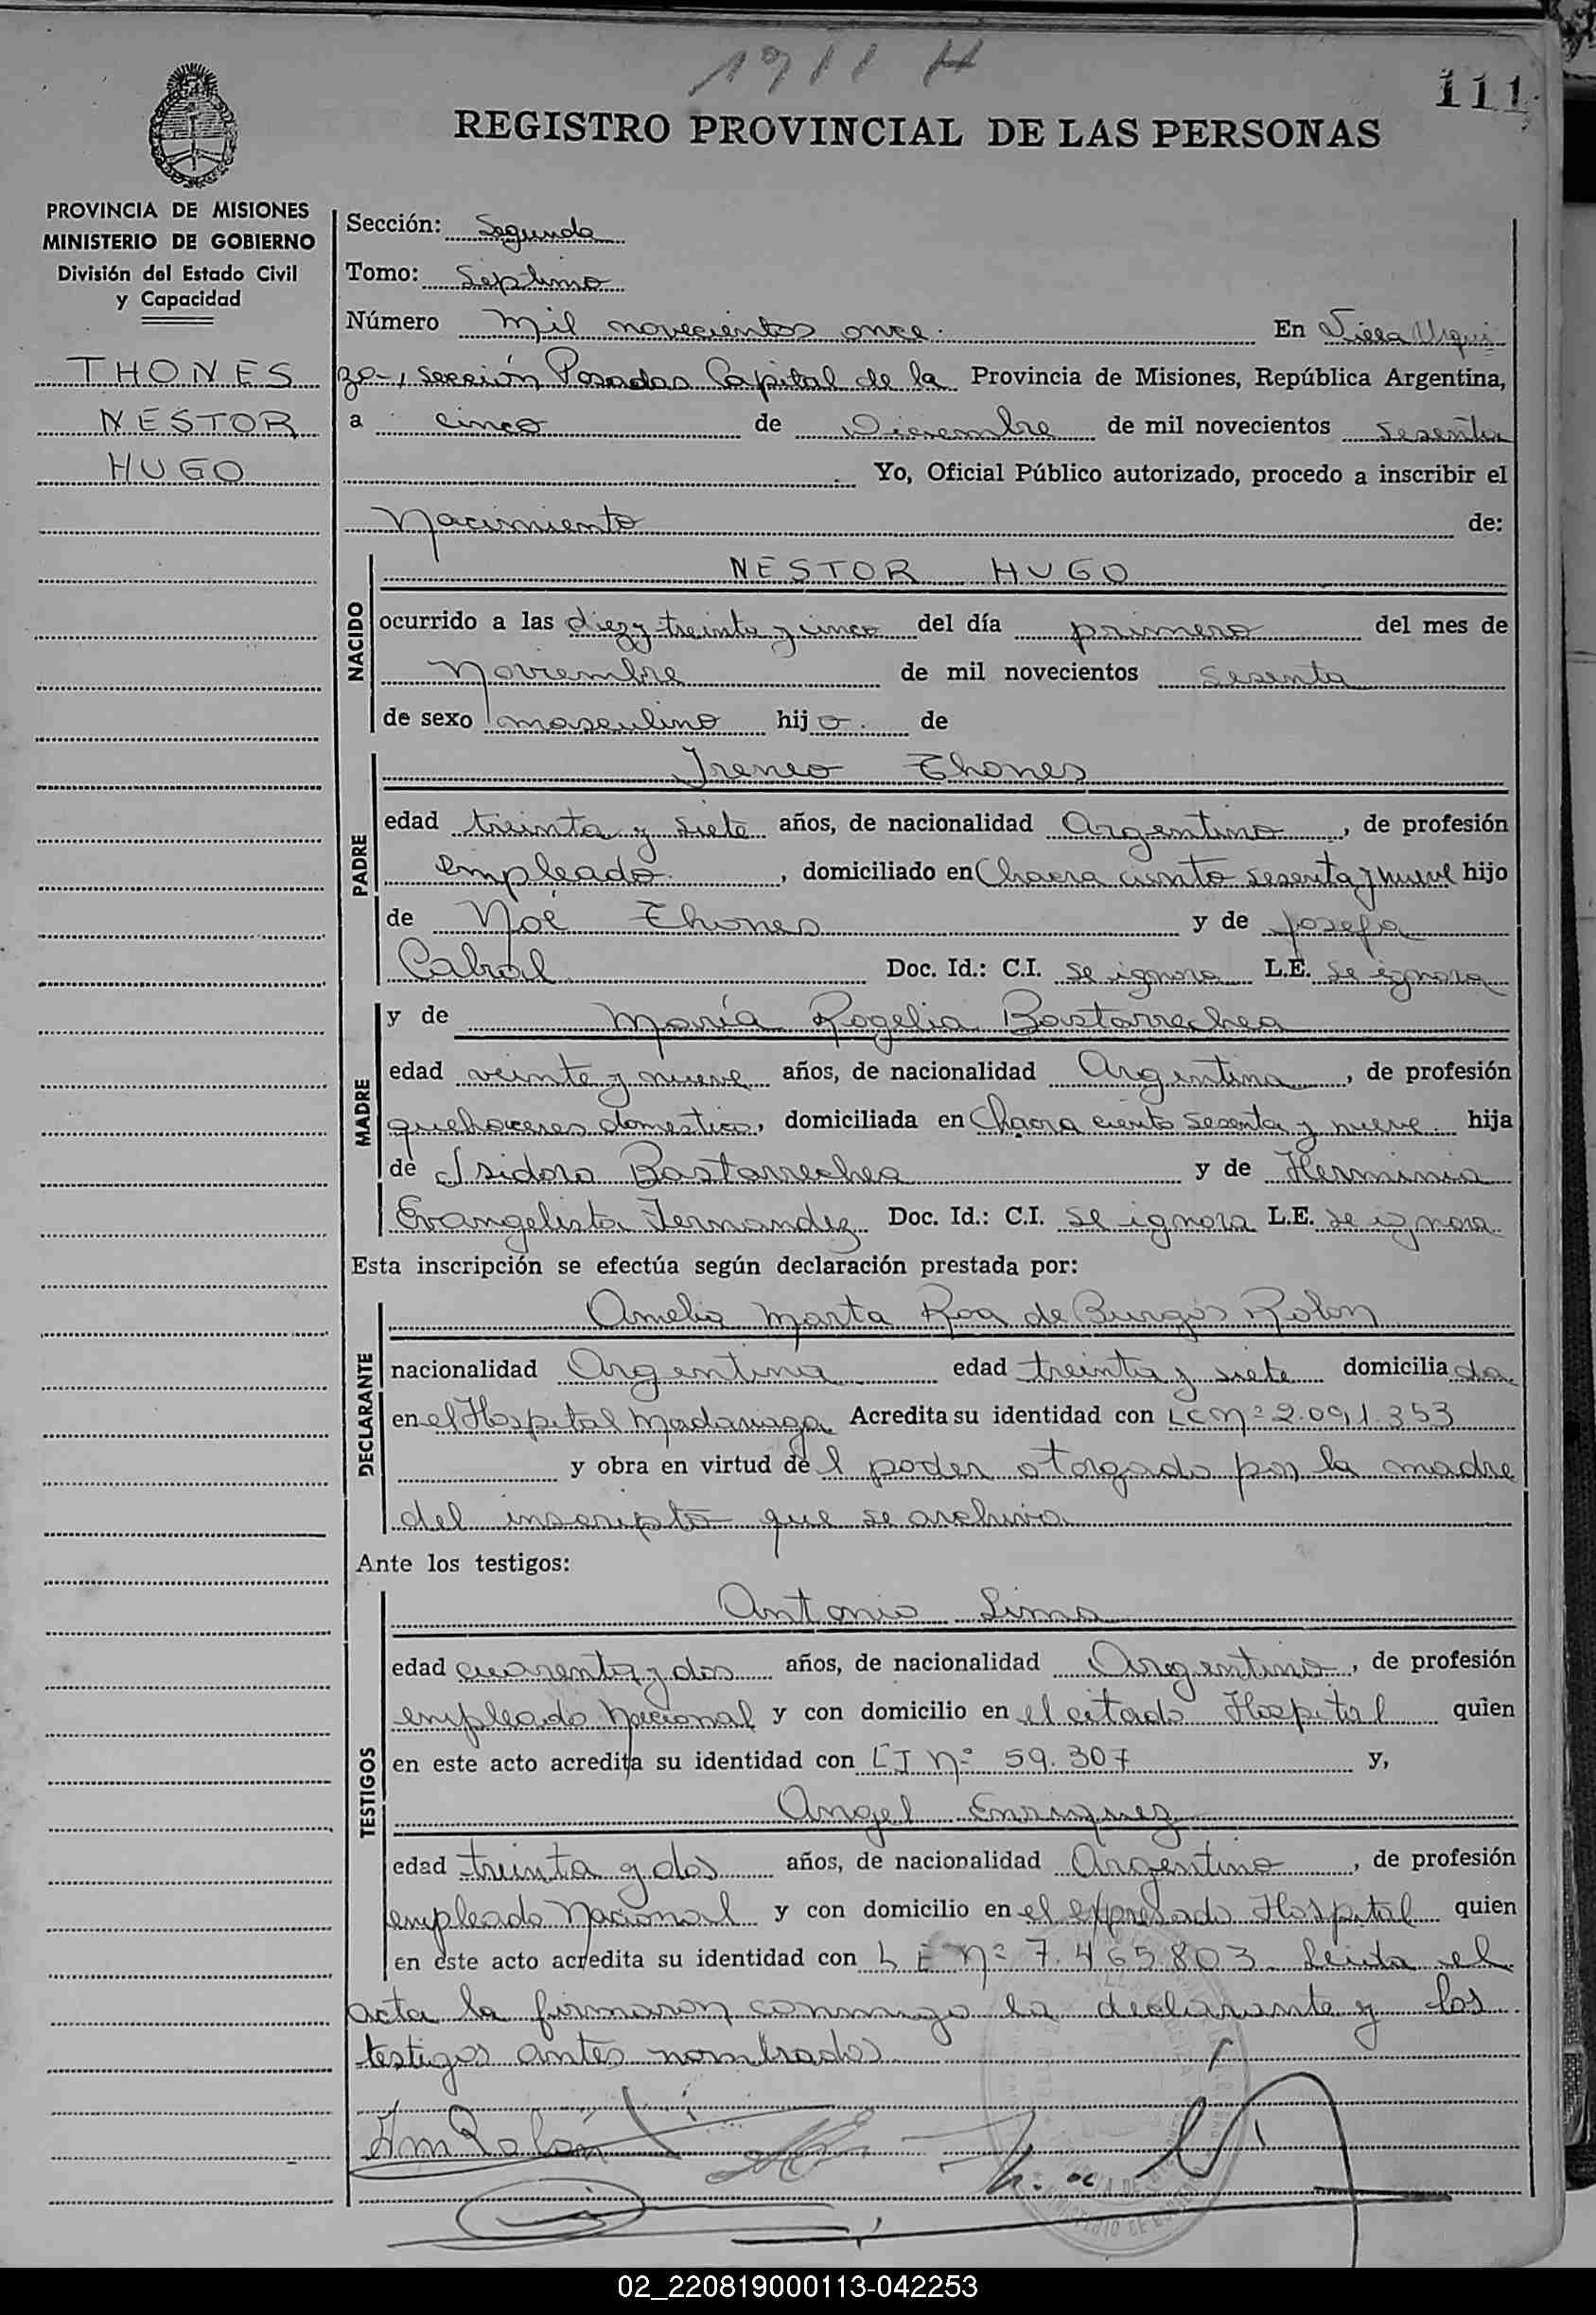 1911 H
111
REGISTRO PROVINCIAL DE LAS PERSONAS
PROVINCIA DE MISIONES
MINISTERIO DE GOBIERNO
División del Estado Civil
y Capacidad
THONES
NESTOR
HUGO
Sección: Segunda
Tomo: Septimo
Número Mil novecientos once. En Villa Urqui
za, sección Posadas Capital de la Provincia de Misiones, República Argentina,
a cinco de Diciembre de mil novecientos sesenta
Yo, Oficial Público autorizado, procedo a inscribir el
Nacimiento de:
NACIDO
NESTOR HUGO
ocurrido a las diez y treinta y cinco del día primero del mes de
Noviembre de mil novecientos sesenta
de sexo masculino hijo. de
PADRE
Ireneo Thones
edad treinta y siete años, de nacionalidad Argentino, de profesión
empleado, domiciliado en Chacra ciento sesenta y nueve hijo
de Noé Thones y de Josefa
Cabral Doc. Id.: C.I. se ignora L.E. se ignora
MADRE
y de María Rogelia Bastarrechea
edad veinte y nueve años, de nacionalidad Argentina, de profesión
quehaceres domesticos, domiciliada en Chacra ciento sesenta y nueve hija
de Isidoro Bastarrechea y de Herminia
Evangelista Fernandez Doc. Id.: C.I. se ignora L.E. se ignora
Esta inscripción se efectúa según declaración prestada por:
DECLARANTE
Amelia Marta Roa de Burgos Rolon
nacionalidad Argentina edad treinta y siete domiciliada
en el Hospital Madariaga Acredita su identidad con LC Nº 2.091.353
y obra en virtud del poder otorgado por la madre
del inscripto que se archiva
Ante los testigos:
TESTIGOS
Antonio Lima
edad cuarenta y dos años, de nacionalidad Argentino, de profesión
empleado Nacional y con domicilio en el citado Hospital quien
en este acto acredita su identidad con CI Nº 59.307 y,
Angel Enriquez
edad treinta y dos años, de nacionalidad Argentino, de profesión
empleado Nacional y con domicilio en el expresado Hospital quien
en este acto acredita su identidad con L E Nº 7.465.803 Leida el
acta la firmaron conmigo la declarante y los
testigos antes nombrados
AmRolón
02_220819000113-042253